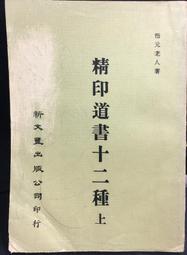 悟元老人著
精印道書十二種 上
新文豐出版公司印行